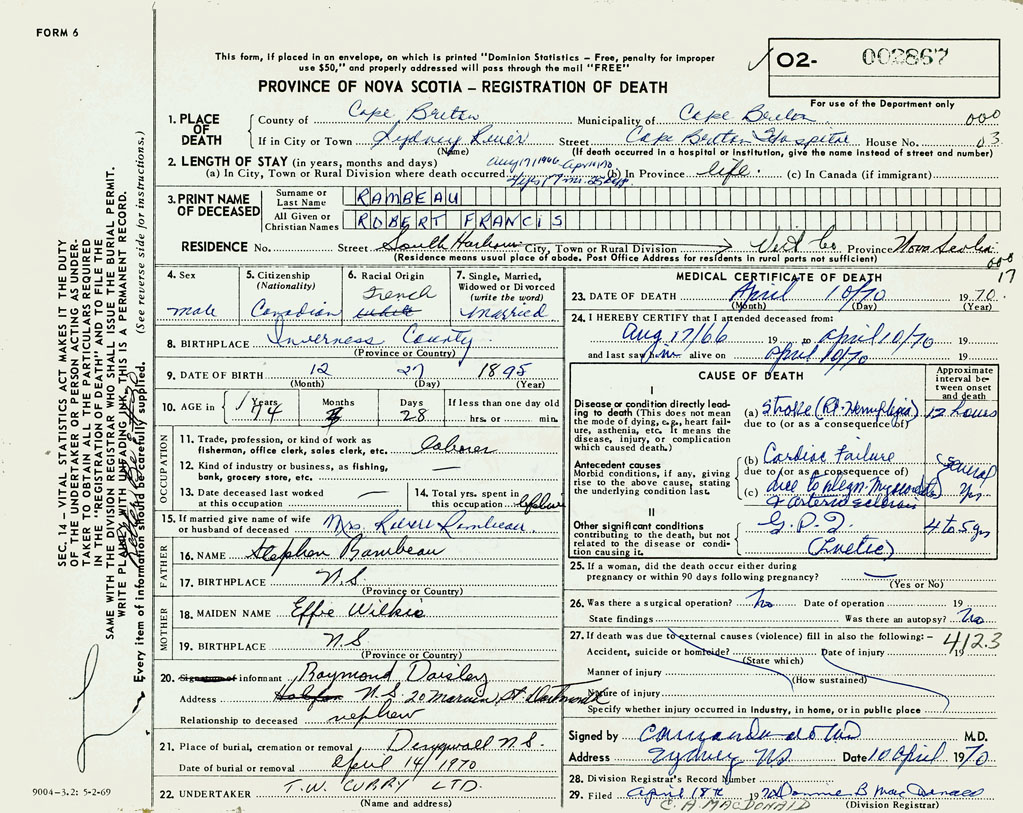 FORM 6
This form, if placed in an envelope, on which is printed "Dominion Statistics – Free, penalty for improper
use $50," and properly addressed will pass through the mail "FREE"
O2- 002867
For use of the Department only
PROVINCE OF NOVA SCOTIA – REGISTRATION OF DEATH
SEC. 14 – VITAL STATISTICS ACT MAKES IT THE DUTY
OF THE UNDERTAKER OR PERSON ACTING AS UNDER-
TAKER TO OBTAIN ALL THE PARTICULARS REQUIRED
IN THE "REGISTRATION OF DEATH" AND TO FILE THE
SAME WITH THE DIVISION REGISTRAR WHO SHALL ISSUE THE BURIAL PERMIT.
WRITE PLAINLY WITH UNFADING INK. THIS IS A PERMANENT RECORD.
Every item of information should be carefully supplied. (See reverse side for instructions.)
1. PLACE OF DEATH
County of Cape Breton Municipality of Cape Breton 000
If in City or Town Sydney River Street Cape Breton Hospital House No. 03
(Name) (If death occurred in a hospital or institution, give the name instead of street and number)
2. LENGTH OF STAY (in years, months and days) Aug 17/1966 - Apr 10/70
(a) In City, Town or Rural Division where death occurred (b) In Province life. (c) In Canada (if immigrant)
3. PRINT NAME OF DECEASED
Surname or Last Name RAMBEAU
All Given or Christian Names ROBERT FRANCIS
RESIDENCE No. Street South Harbour City, Town or Rural Division Vict Co. Province Nova Scotia
(Residence means usual place of abode. Post Office Address for residents in rural parts not sufficient)
000
17
4. Sex male
5. Citizenship (Nationality) Canadian
6. Racial Origin French white
7. Single, Married, Widowed or Divorced (write the word) Married
8. BIRTHPLACE Inverness County
(Province or Country)
9. DATE OF BIRTH 12 27 1895
(Month) (Day) (Year)
10. AGE in Years 74 Months Days 28 If less than one day old hrs. or min.
OCCUPATION
11. Trade, profession, or kind of work as
fisherman, office clerk, sales clerk, etc. laborer
12. Kind of industry or business, as fishing,
bank, grocery store, etc. —
13. Date deceased last worked —
14. Total yrs. spent in
at this occupation
15. If married give name of wife
or husband of deceased Mrs. Robert Rambeau
FATHER
16. NAME Stephen Rambeau
17. BIRTHPLACE N.S.
(Province or Country)
MOTHER
18. MAIDEN NAME Effie Wilkie
19. BIRTHPLACE N.S
(Province or Country)
20. Signature of informant Raymond Daisley
Address Halifax N.S. 20 St. Dartmouth
Relationship to deceased nephew
21. Place of burial, cremation or removal Dingwall N.S.
Date of burial or removal April 14/1970
22. UNDERTAKER T.W. CURRY LTD.
(Name and address)
9004-3.2: 5-2-69
MEDICAL CERTIFICATE OF DEATH
23. DATE OF DEATH April 10/70 1970.
(Month) (Day)
24. I HEREBY CERTIFY that I attended deceased from:
Aug 17/66 19 to April 10/70 19
and last saw him alive on April 10/70 19
CAUSE OF DEATH
Approximate interval between onset and death
I
Disease or condition directly leading to death (This does not mean the mode of dying, e.g., heart failure, asthenia, etc. It means the disease, injury, or complication which caused death.)
(a) Stroke (Rt. Hemiplegia) 12 hours
due to (or as a consequence of)
Antecedent causes
Morbid conditions, if any, giving rise to the above cause, stating the underlying condition last.
(b) Cardiac Failure Several yrs.
due to (or as a consequence of)
(c) due to degen. Myocarditis
& arteriosclerosis
II
Other significant conditions contributing to the death, but not related to the disease or condition causing it.
G.P.I. 4 to 5 yrs
(Luetic)
25. If a woman, did the death occur either during
pregnancy or within 90 days following pregnancy? —
(Yes or No)
26. Was there a surgical operation? No Date of operation 19
State findings Was there an autopsy? No
27. If death was due to external causes (violence) fill in also the following: –
4123
Accident, suicide or homicide? Date of injury 19
(State which)
Manner of injury
(How sustained)
Nature of injury
Specify whether injury occurred in industry, in home, or in public place
Signed by M.D.
Address Sydney NS Date 10 April 1970
28. Division Registrar's Record Number
29. Filed April 18th 1970 Donnie B MacDonald
C. A. MACDONALD (Division Registrar)